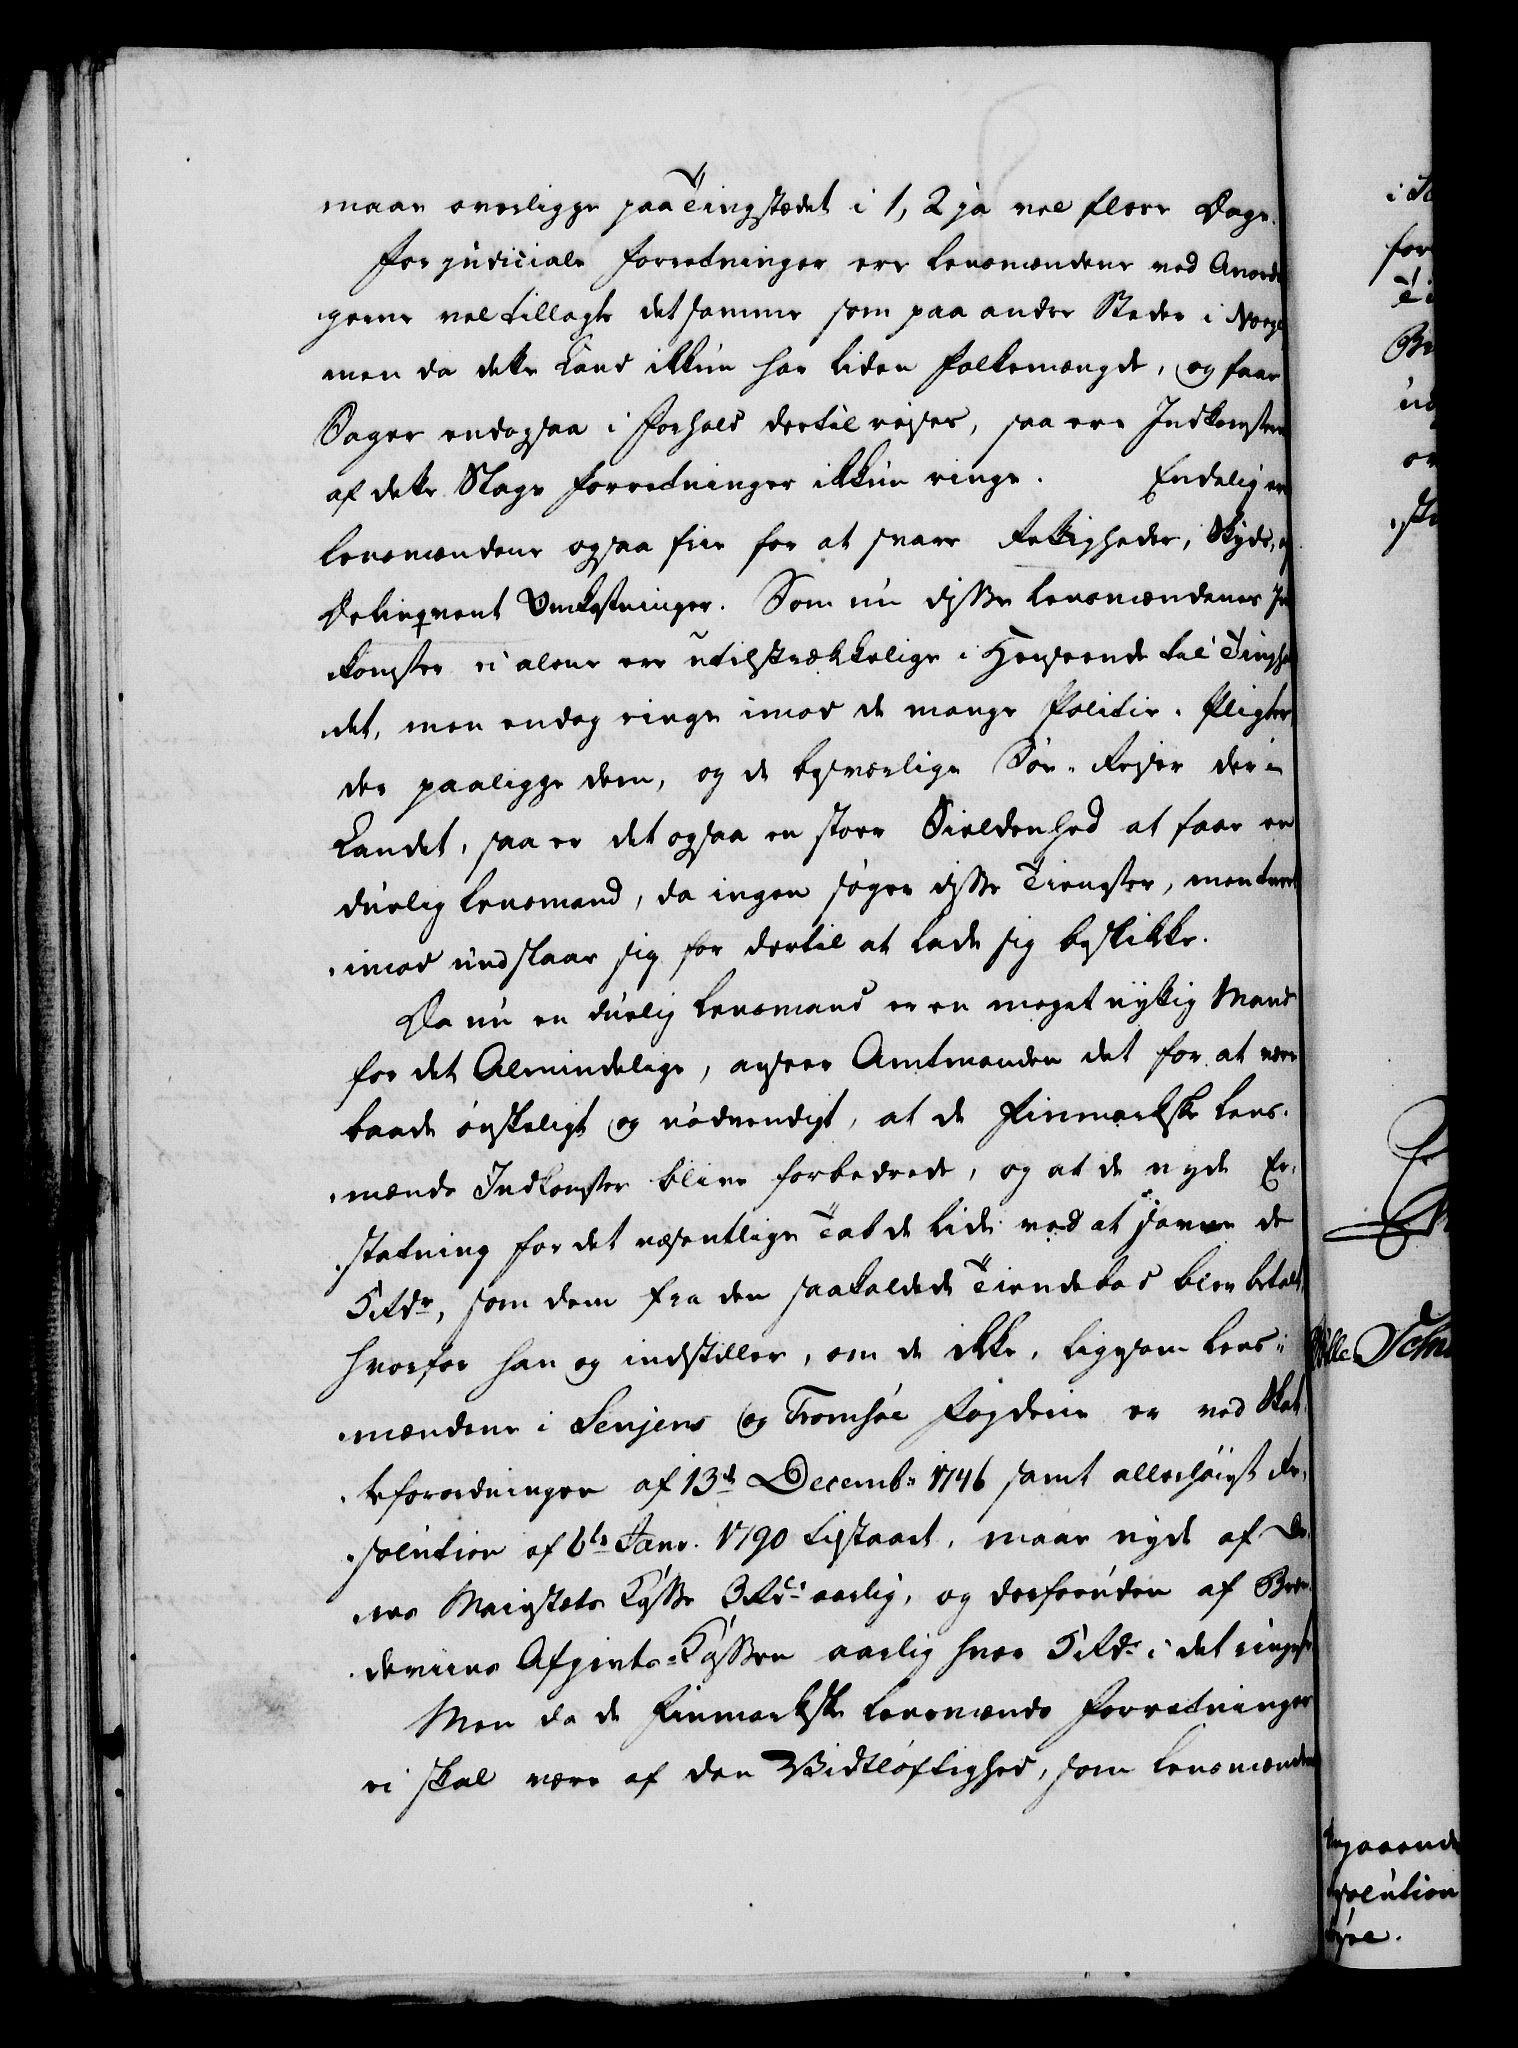 maae overligge paa Tingstædet i 1, 2 ja vel flere Dage.
For judiciale Forretninger ere Lensmændene ved Anord
gerne vel tillagte det samme som paa andre Steder i Norge
men da dette Land ikkun har liden Folkemængde, og faae
Sager endogsaa i Forhold dertil rejses, saa ere Indkomsterne
af dette Slags Forretninger ikkun ringe. Endelig ere
Lensmændene ogsaa frie for at svare Rettigheder, Skyds- og
Delinqvent Omkostninger. Som nu disse Lensmændenes Ind
komster ei alene ere utilstrækkelige i Henseende til Tinghol
det, men endog ringe imod de mange Politie-Pligter,
der paaligge dem, og de besværlige Søe-Rejser der i
Landet, saa er det ogsaa en stoer Sieldenhed at faae en
duelig Lensmand, da ingen søger disse Tienester, men tvert
imod undslaaer sig for dertil at lade sig beskikke.
Da nu en duelig Lensmand er en meget nyttig Mand
for det Almindelige, anseer Amtmanden det for at være
baade ønskeligt og nødvendigt, at de Finmarkske Lens-
mænds Indkomster blive forbedrede, og at de nyde Er-
statning for det væsentlige Tab de lide ved at savne de
5 Rdr, som dem fra den saakaldede Tiendebod blev betalt,
hvorfor han og indstiller, om de ikke, ligesom Lens-
mændene i Senjens og Tromsøe Fogderie er ved Skat-
teforordningen af 13d Decembr 1746 samt allerhøiest Re-
solution af 6te Janr. 1790 tilstaaet, maae nyde af De-
res Majestæts Kasse 3 Rdr aarlig, og derforuden af Bræn-
deviins Afgivts-Kassen aarlig hver 5 Rdr i det ringeste
Men da de Finmarkske Lensmænds Forretninger
ei skal være af den Vidtløftighed, som Lensmændene